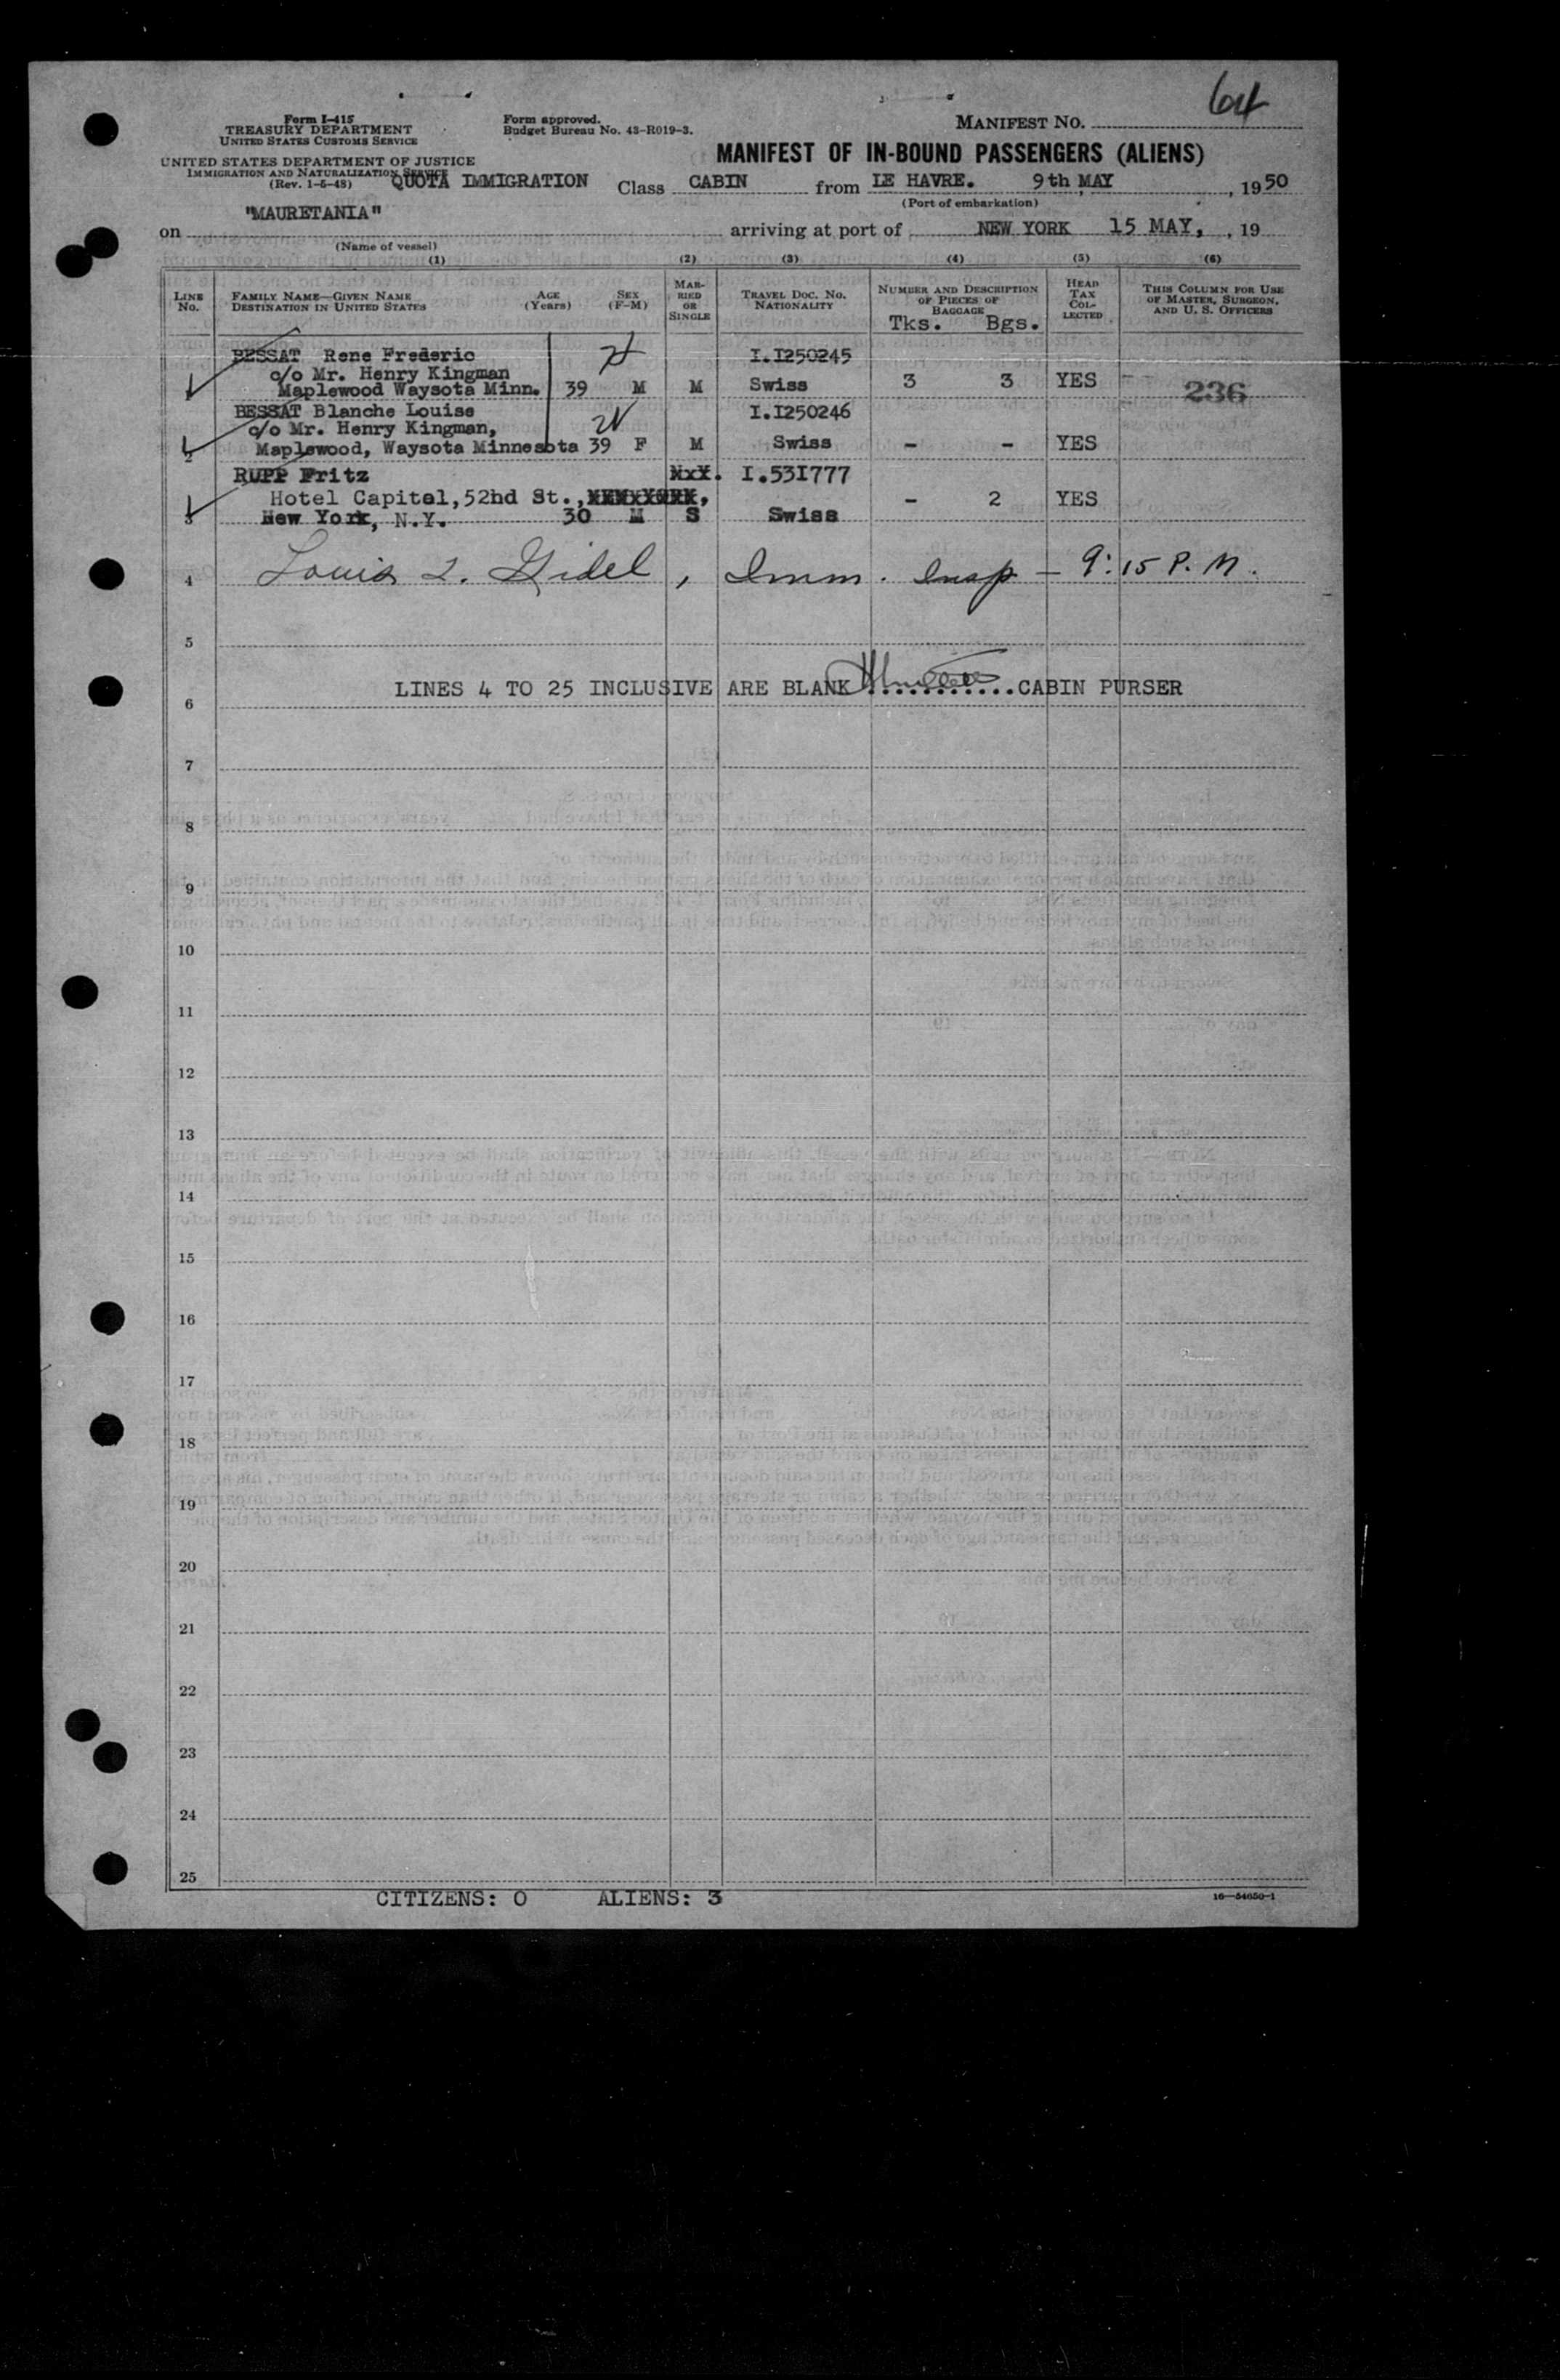 64
Form I-415
TREASURY DEPARTMENT
UNITED STATES CUSTOMS SERVICE
Form approved.
Budget Bureau No. 43-R019-3.
MANIFEST NO.
UNITED STATES DEPARTMENT OF JUSTICE
IMMIGRATION AND NATURALIZATION SERVICE
(Rev. 1-5-48)
MANIFEST OF IN-BOUND PASSENGERS (ALIENS)
QUOTA IMMIGRATION Class CABIN from LE HAVRE. 9th MAY, 1950
(Port of embarkation)
on "MAURETANIA" arriving at port of NEW YORK 15 MAY, , 19
(Name of vessel)
(1) (2) (3) (4) (5) (6)
LINE No. FAMILY NAME—GIVEN NAME DESTINATION IN UNITED STATES AGE (Years) SEX (F-M) MARRIED OR SINGLE TRAVEL DOC. NO. NATIONALITY NUMBER AND DESCRIPTION OF PIECES OF BAGGAGE Tks. Bgs. HEAD TAX COLLECTED THIS COLUMN FOR USE OF MASTER, SURGEON, AND U. S. OFFICERS
BESSAT Rene Frederic I.I250245
c/o Mr. Henry Kingman
Maplewood Waysota Minn. 39 M M Swiss 3 3 YES 236
BESSAT Blanche Louise I.I250246
c/o Mr. Henry Kingman,
2 Maplewood, Waysota Minnesota 39 F M Swiss - - YES
RUPP Fritz I.53I777
Hotel Capitol, 52nd St., - 2 YES
3 New York, N.Y. 30 M S Swiss
4 Louis L. Gidel, Imm. Insp - 9:15 P.M.
5
LINES 4 TO 25 INCLUSIVE ARE BLANK ............CABIN PURSER
6
7
8
9
10
11
12
13
14
15
16
17
18
19
20
21
22
23
24
25
CITIZENS: 0 ALIENS: 3
16—54650-1